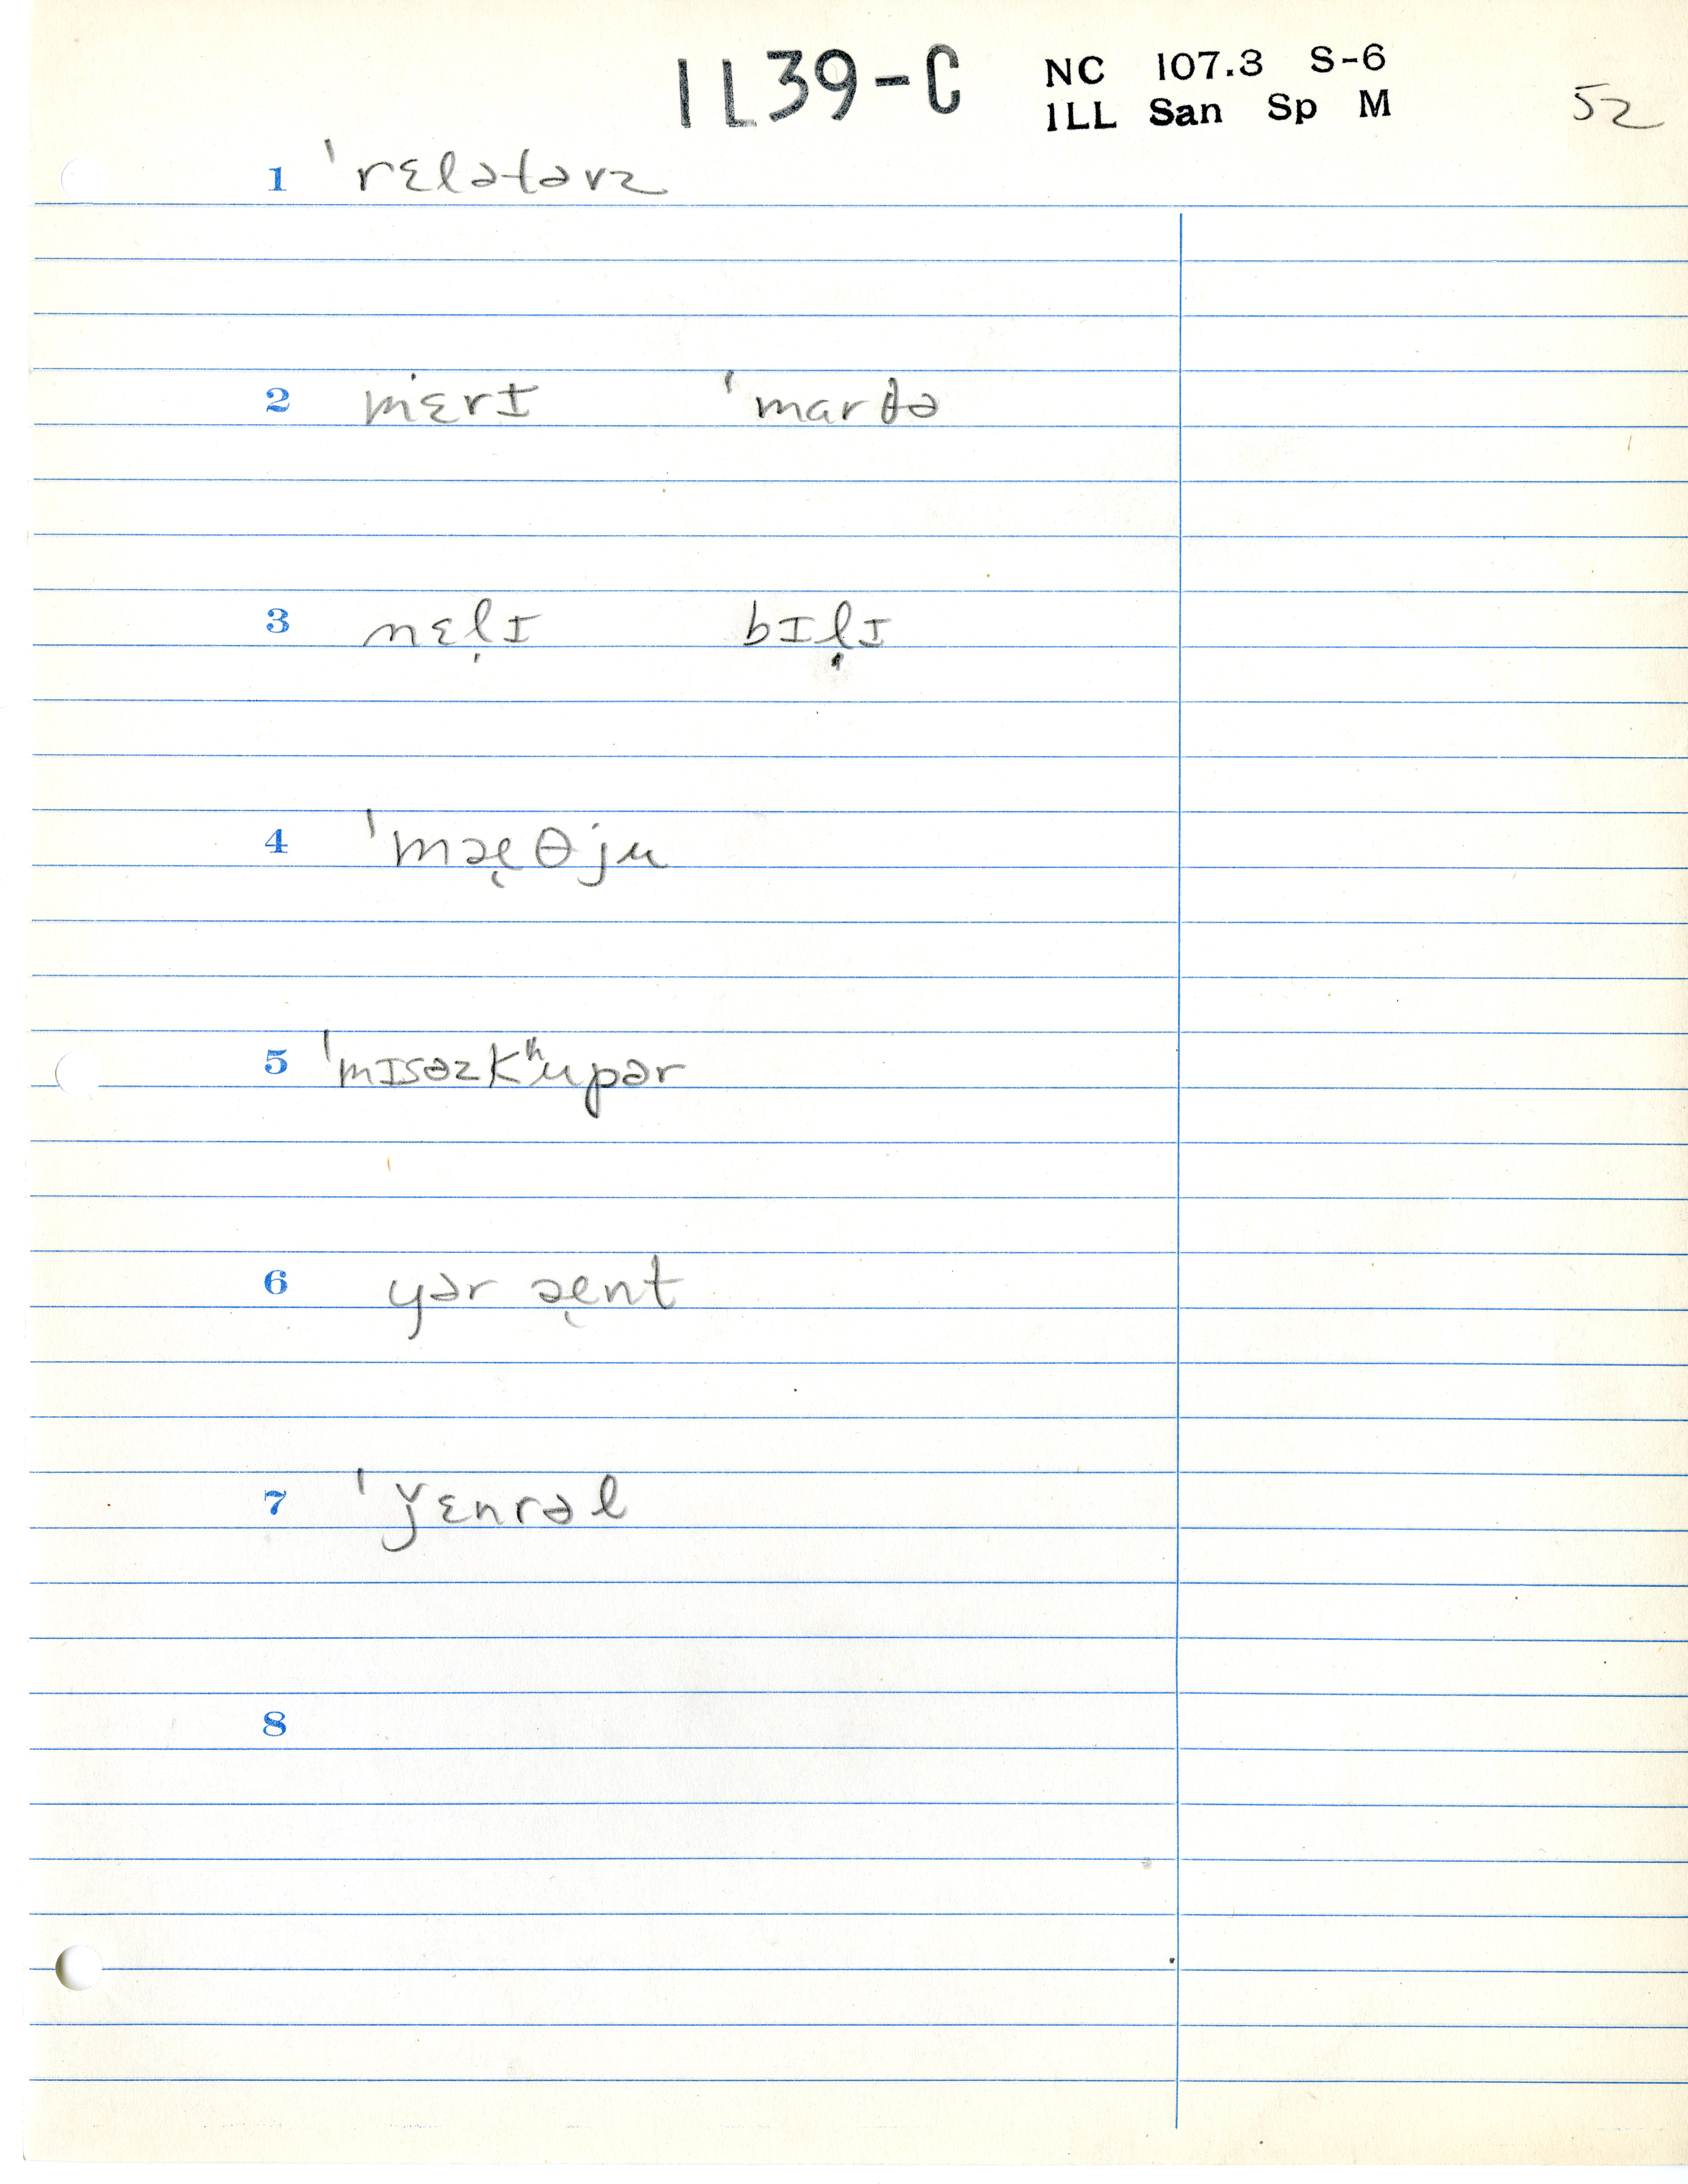 1L39-C NC 107.3 S-6
1LL San Sp M
52
1 ˈrɛlətəvz
2 mɛrɪ ˈmarθə
3 nɛḷɪ bɪḷɪ
4 ˈmæ̨θju
5 ˈmɪsəzkʰupər
6 yər æ̨nt
7 ˈǰɛnrəl
8